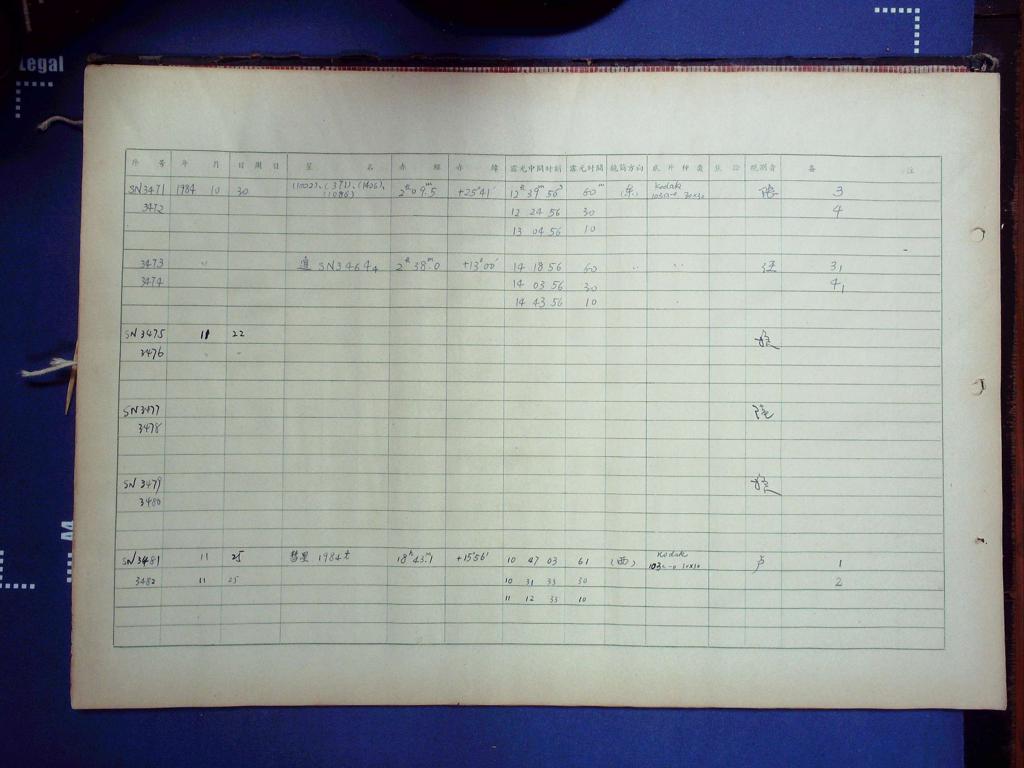 Legal
序 號 年 月 日 期 日 星 名 赤 經 赤 緯 露光中間時刻 露光時間 鏡筒方向 底片种类 觀測者 备 注
SN3471 1984 10 30 (1002)、(371)、(1426)、 2h 09m.5 +25°41′ 12h 39m 56s 60m (东) Kodak 3
(1086) 103a-o 30x30
3472 12 24 56 30 4
13 04 56 10
3473 〃 SN3464 2h 38m.0 +13°00′ 14 18 56 60 〃 〃 汪 31
3474 14 03 56 30 41
14 43 56 10
SN3475 11 22
3476 〃 〃
SN3477
3478
SN3479
3480
SN3481 11 25 彗星 1984t 18h 43m.1 +15°56′ 10 47 03 61 (西) Kodak 卢 1
103a-o 30x30
3482 11 25 10 31 33 30 2
11 12 33 10
M